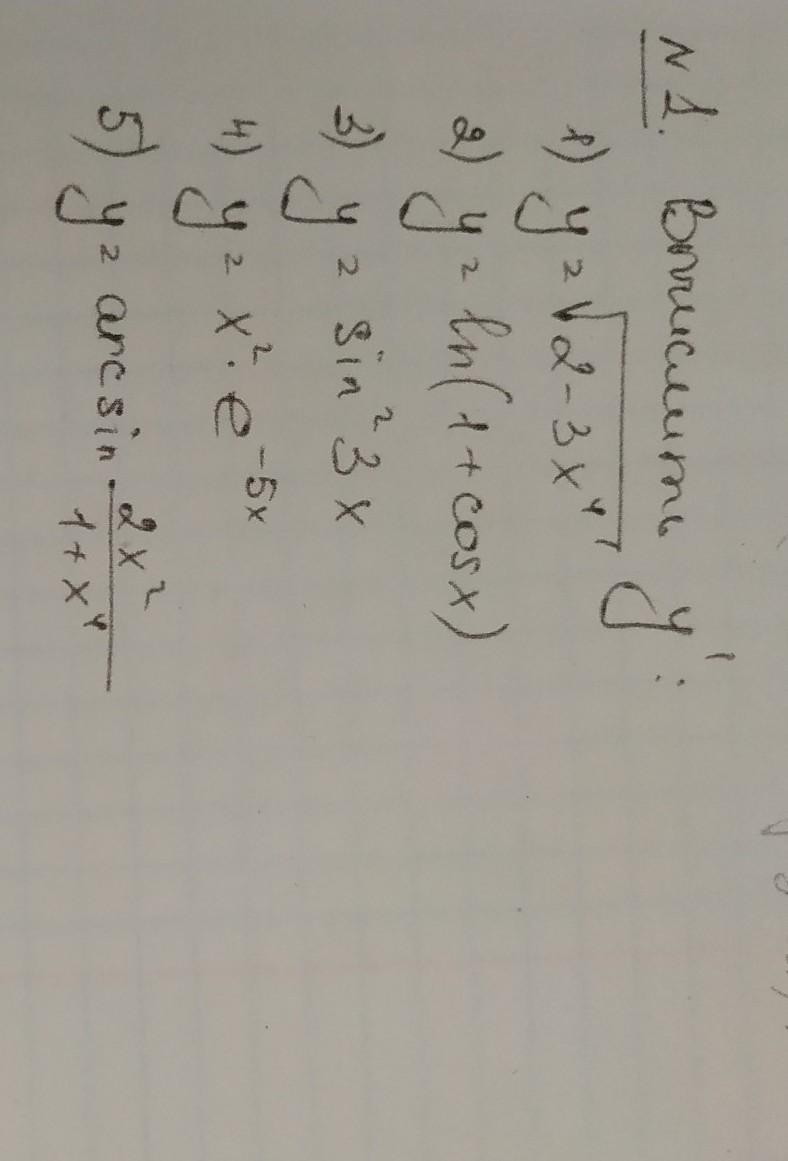 N 1. Вычислить y':
1) y = √(2 - 3x⁴)
2) y = ln(1 + cosx)
3) y = sin² 3x
4) y = x² · e^(-5x)
5) y = arcsin (2x²)/(1 + x⁴)